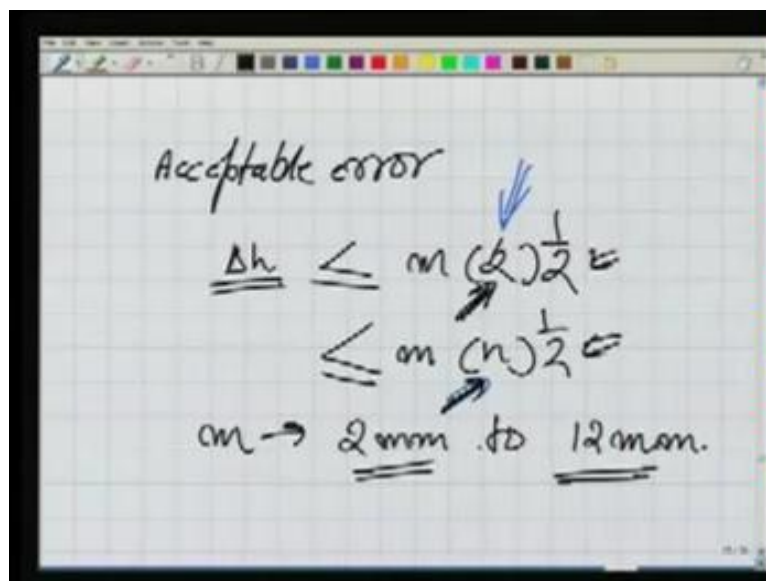 Acceptable error
Δh ≤ m (2)^1/2 =
≤ m (n)^1/2 =
m → 2mm to 12mm.